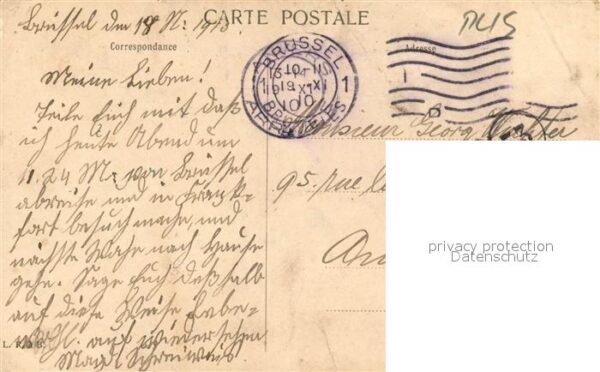 Brüssel den 18 N: 1913.
CARTE POSTALE
Correspondance
Adresse
BRÜSSEL
1 1
BRUXELLES
Meine Lieben!
Teile Euch mit daß
ich heute Abend um
11.24 M. von Brüssel
abreise und in Frank-
fort besuch mache, und
nächste Wo he nach Hause
gehe. Sage Euch deßhalb
auf diese Weise Lebe-
wohl. auf wiedersehen
L.
Monsieur Georg
95. rue
privacy protection
Datenschutz